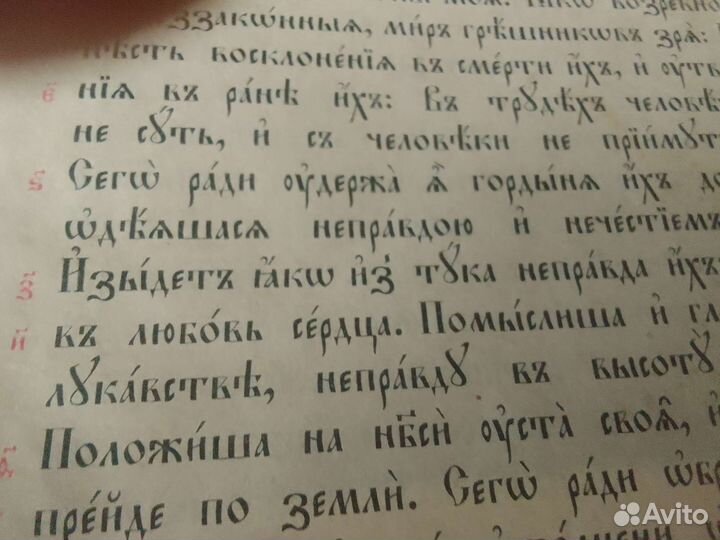 моѧ̑. Ꙗ҆́кѡ возревно
ззакѡ́нныѧ, ми́ръ грѣ́шникѡвъ зрѧ̀:
нѣ́сть восклоне́нїѧ въ сме́рти и҆́хъ, и҆ ᲂу҆тв
є҃ нїѧ въ ра́нѣ и҆́хъ: Въ трꙋдѣ́хъ человѣ
не сꙋ́ть, и҆ съ человѣ́ки не прїи́мꙋт
ѕ҃ Сегѡ̀ ра́ди ᲂу҆держа̀ ѧ҆̀ горды́нѧ и҆́хъ до
ѡ҆дѣ́ѧшасѧ непра́вдою и҆ нече́стїемъ
з҃ И҆зы́детъ ꙗ҆́кѡ и҆з̾ тꙋ́ка непра́вда и҆́хъ:
и҃ въ любо́вь се́рдца. Помы́слиша и҆ гл
лꙋка́вствѣ, непра́вдꙋ въ высотꙋ̀
Положи́ша на нб҃сѝ ᲂу҆ста̀ своѧ̑, и҆
пре́йде по землѝ. Сегѡ̀ ра́ди ѡ҆бр
Avito